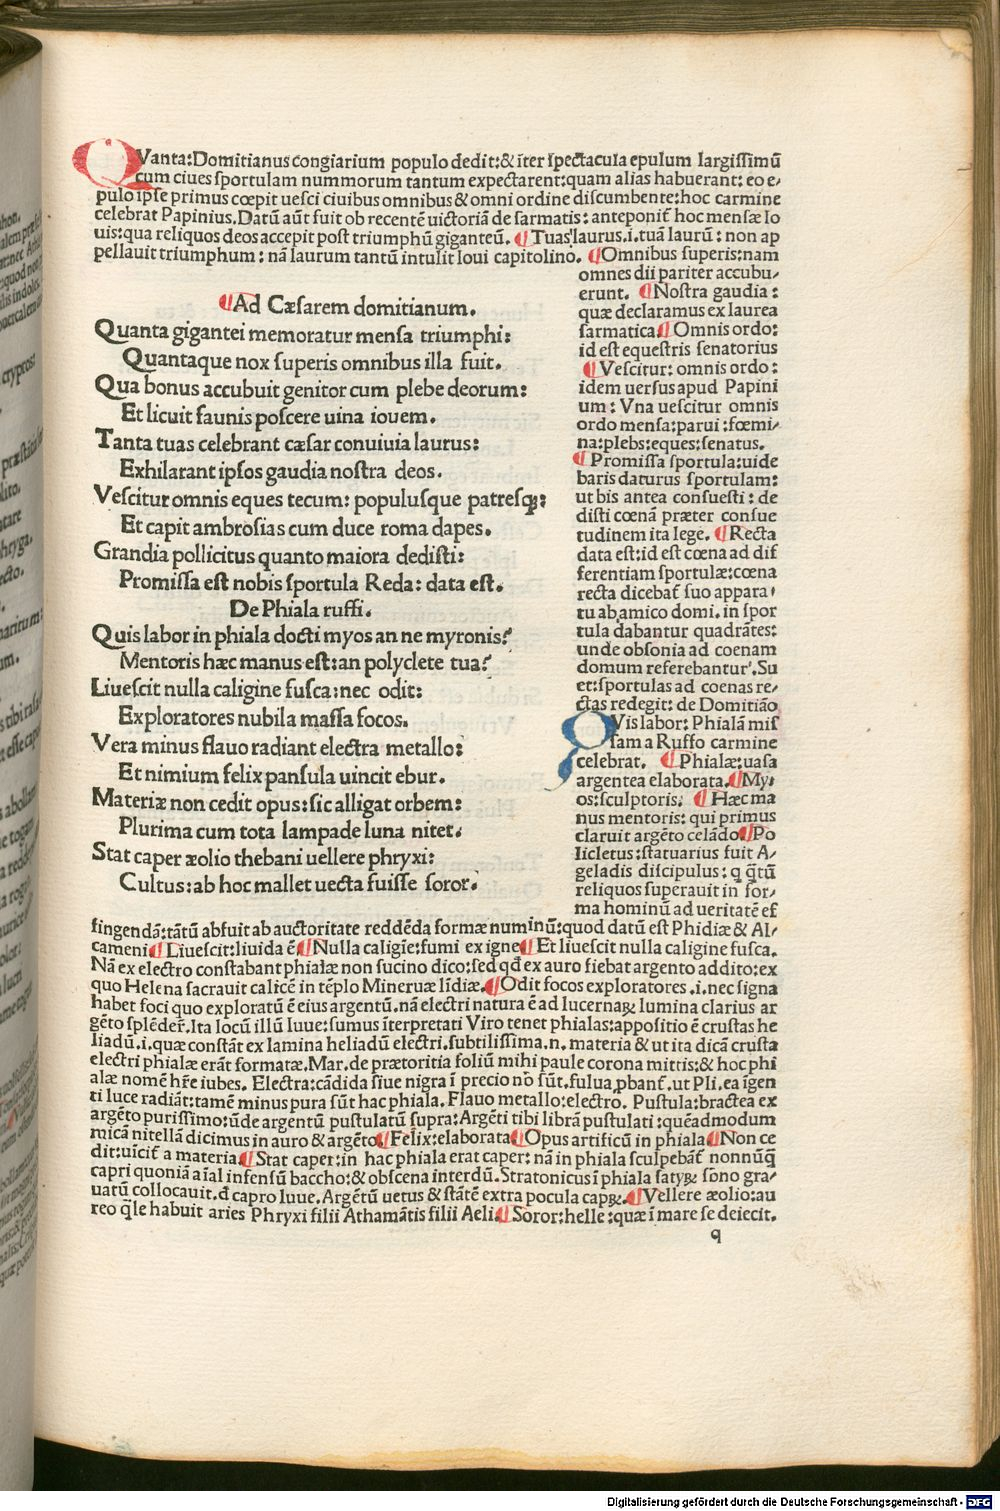 QVanta:Domitianus congiarium populo dedit:& īter spectacula epulum largissimū
cum ciues sportulam nummorum tantum expectarent:quam alias habuerant: eo e,
pulo ipse primus cœpit uesci ciuibus omnibus & omni ordine discumbente:hoc carmine
celebrat Papinius. Datū aūt fuit ob recentē uictoriā de sarmatis: anteponit hoc mensæ Io
uis:qua reliquos deos accepit post triumphū giganteū. ¶Tuas laurus.i.tuā laurū: non ap
pellauit triumphum: nā laurum tantū intulit Ioui capitolino. ¶Omnibus superis:nam
omnes dii pariter accubu,
erunt. ¶Nostra gaudia:
quæ declaramus ex laurea
sarmatica.¶ Omnis ordo:
id est equestris senatorius
¶Vescitur: omnis ordo:
idem uersus apud Papini
um: Vna uescitur omnis
ordo mensa:parui:fœmi,
na:plebs:eques:senatus.
¶Promissa sportula:uide
baris daturus sportulam:
ut bis antea consuesti: de
disti cœnā præter consue
tudinem ita lege. ¶Recta
data est:id est cœna ad dif
ferentiam sportulæ:cœna
recta dicebat suo appara,
tu ab amico domi. in spor
tula dabantur quadrātes:
unde obsonia ad coenam
domum referebantur. Su
et:sportulas ad coenas re,
ctas redegit: de Domitiāo
¶Ad Cæsarem domitianum.
Quanta gigantei memoratur mensa triumphi:
Quantaque nox superis omnibus illa fuit.
Qua bonus accubuit genitor cum plebe deorum:
Et licuit faunis poscere uina iouem.
Tanta tuas celebrant cæsar conuiuia laurus:
Exhilarant ipsos gaudia nostra deos.
Vescitur omnis eques tecum: populusque patresq;:
Et capit ambrosias cum duce roma dapes.
Grandia pollicitus quanto maiora dedisti:
Promissa est nobis sportula Reda: data est.
De Phiala ruffi.
Quis labor in phiala docti myos an ne myronis?
Mentoris hæc manus est:an polyclete tua?
Liuescit nulla caligine fusca:nec odit:
Exploratores nubila massa focos.
Vera minus flauo radiant electra metallo:
Et nimium felix pansula uincit ebur.
Materiæ non cedit opus:sic alligat orbem:
Plurima cum tota lampade luna nitet.
Stat caper æolio thebani uellere phryxi:
Cultus:ab hoc mallet uecta fuisse soror.
QVis labor: Phialā mis
sam a Ruffo carmine
celebrat. ¶Phialæ:uasa
argentea elaborata.¶My,
os:sculptoris. ¶Hæc ma
nus mentoris: qui primus
claruit argēto celādo¶Po
licletus:statuarius fuit A,
geladis discipulus: q q̄tū
reliquos superauit in for,
ma hominū ad ueritatē ef
fingendā:tātū absuit ab auctoritate reddēda formæ numinū:quod datū est Phidiæ & Al,
cameni¶Liuescit:liuida ē¶Nulla caligīe:fumi ex igne¶Et liuescit nulla caligine fusca.
Nā ex electro constabant phialæ non sucino dico:sed qd ex auro fiebat argento addito:ex
quo Helena sacrauit calicē in tēplo Mineruæ lindiæ.¶Odit focos exploratores.i.nec signa
habet foci quo exploratū ē eius argentū.nā electri natura ē ad lucernaꝝ lumina clarius ar
gēto splēder̄.Ita locū illū Iuue:sumus īterpretati Viro tenet phialas:appositio ē crustas he
liadū.i.quæ constāt ex lamina heliadū electri.subtilissima.n.materia & ut ita dicā crusta
electri phialæ erāt formatæ.Mar.de prætoritia foliū mihi paule corona mittis:& hoc phi
alæ nomē hr̄e iubes. Electra:cādida siue nigra ī precio nō sūt.fulua ꝓbant.ut Pli.ea īgen
ti luce radiāt:tamē minus pura sūt hac phiala. Flauo metallo:electro. Pustula:bractea ex
argēto purissimo:ūde argentū pustulatū supra:Argēti tibi librā pustulati:quēadmodum
micā nitellā dicimus in auro & argēto¶Felix:elaborata¶Opus artificū in phiala¶Non ce
dit:uīcit a materia.¶Stat caper:in hac phiala erat caper: nā in phiala sculpebāt nonnūq̄
capri quoniā aīal infensū baccho:& obscena interdū. Stratonicus ī phiala satyꝝ sono gra,
uatū collocauit.d capro Iuue.Argētū uetus & stātē extra pocula capꝝ.¶Vellere æolio:au
reo qle habuit aries Phryxi filii Athamātis filii Aeli.¶Soror:helle:quæ ī mare se deiecit.
q
Digitalisierung gefördert durch die Deutsche Forschungsgemeinschaft - DFG